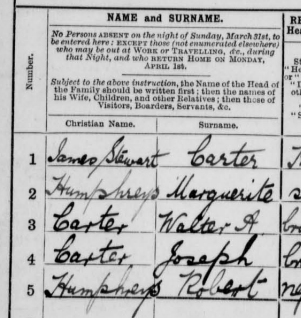 NAME and SURNAME.
RE
Hea
No Persons ABSENT on the night of Sunday, March 31st, to
be entered here; EXCEPT those (not enumerated elsewhere)
who may be out at WORK or TRAVELLING, &c., during
that Night, and who RETURN HOME ON MONDAY,
APRIL 1st.
Subject to the above instruction, the Name of the Head of
the Family should be written first; then the names of
his Wife, Children, and other Relatives; then those of
Visitors, Boarders, Servants, &c.
Number.
Christian Name.
Surname.
1 James Stewart Carter
2 Humphreys Marguerite
3 Carter Walter A.
4 Carter Joseph
5 Humphreys Robert